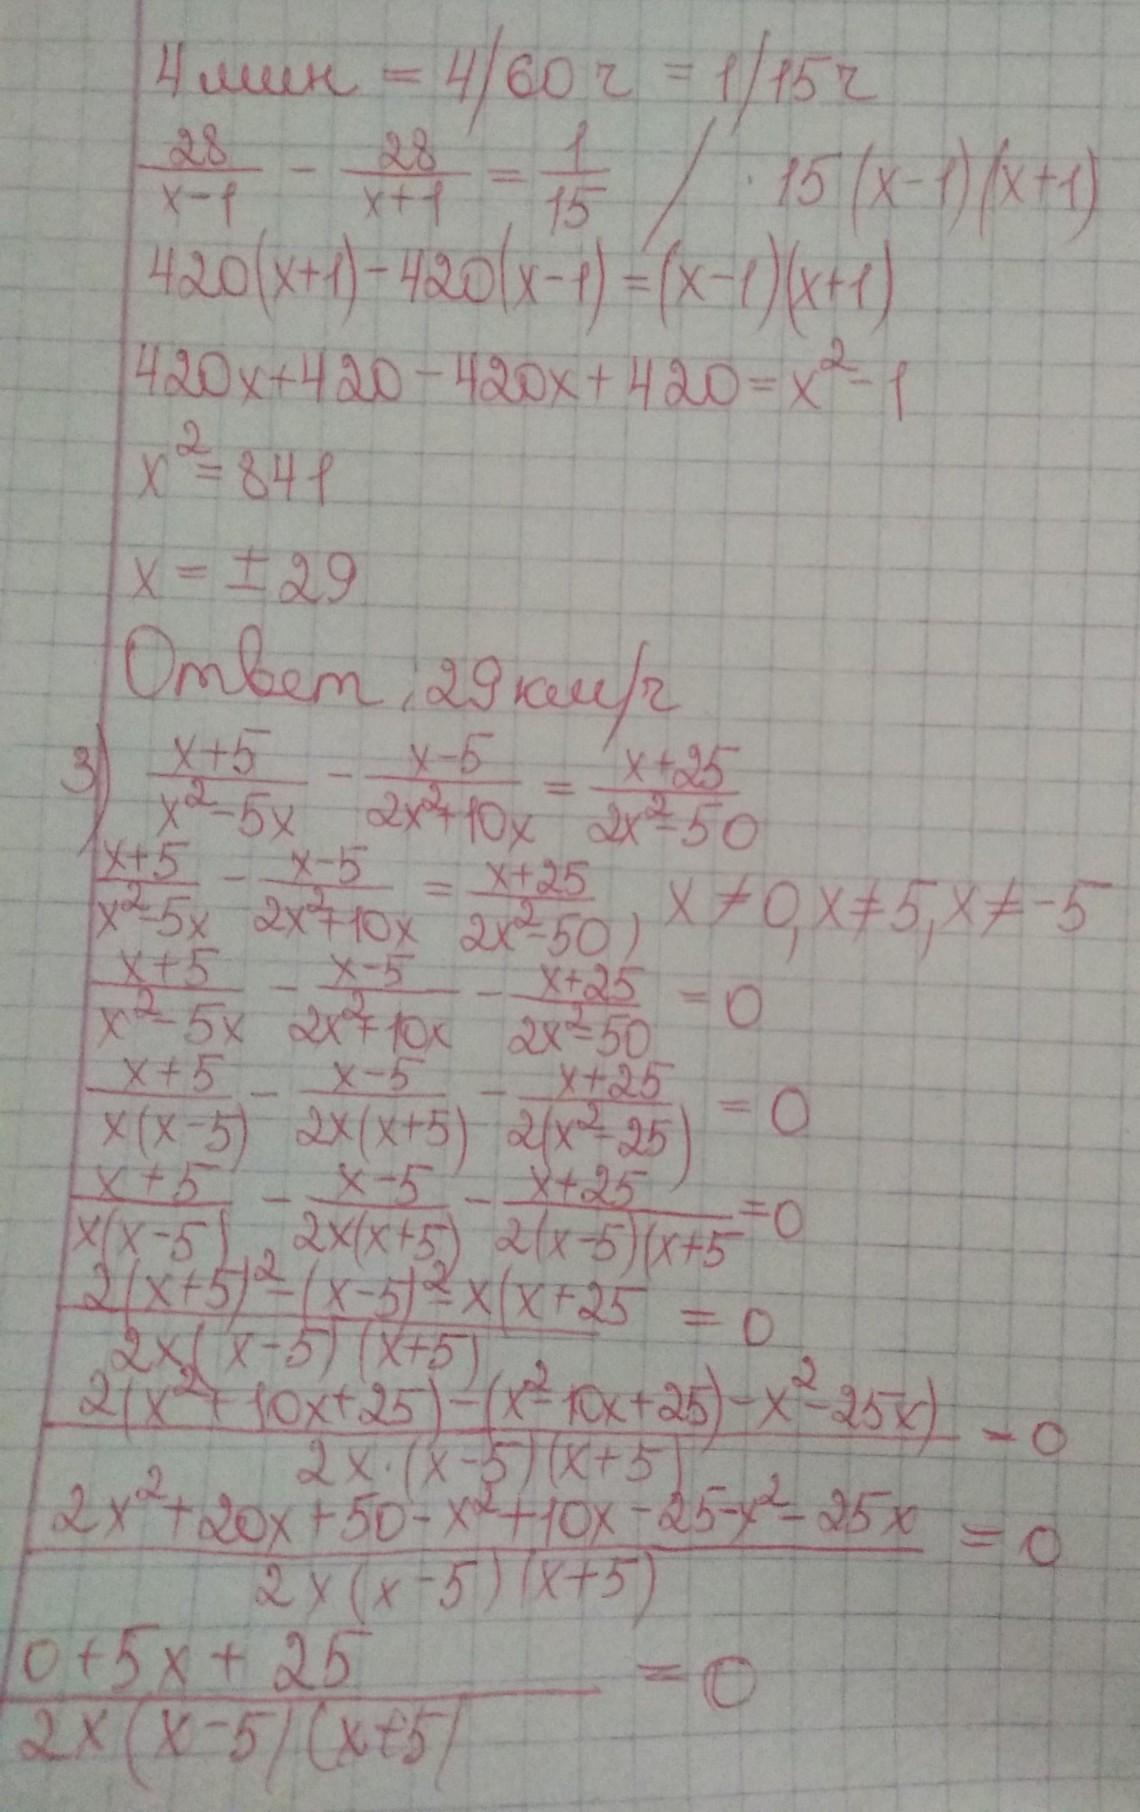 4 мин = 4/60 ч = 1/15 ч
28/(x-1) - 28/(x+1) = 1/15 / · 15(x-1)(x+1)
420(x+1)-420(x-1)=(x-1)(x+1)
420x+420-420x+420=x²-1
x²=841
x=±29
Ответ: 29 км/ч
3) (x+5)/(x²-5x) - (x-5)/(2x²+10x) = (x+25)/(2x²-50)
(x+5)/(x²-5x) - (x-5)/(2x²+10x) = (x+25)/(2x²-50), x≠0, x≠5, x≠-5
(x+5)/(x²-5x) - (x-5)/(2x²+10x) - (x+25)/(2x²-50) = 0
(x+5)/(x(x-5)) - (x-5)/(2x(x+5)) - (x+25)/(2(x²-25)) = 0
(x+5)/(x(x-5)) - (x-5)/(2x(x+5)) - (x+25)/(2(x-5)(x+5) = 0
(2(x+5)²-(x-5)²-x(x+25)/(2x(x-5)(x+5)) = 0
(2(x²+10x+25)-(x²-10x+25)-x²-25x))/(2x·(x-5)(x+5)) - 0
(2x²+20x+50-x²+10x-25-x²-25x)/(2x(x-5)(x+5)) = 0
(0+5x+25)/(2x(x-5)(x+5)) = 0